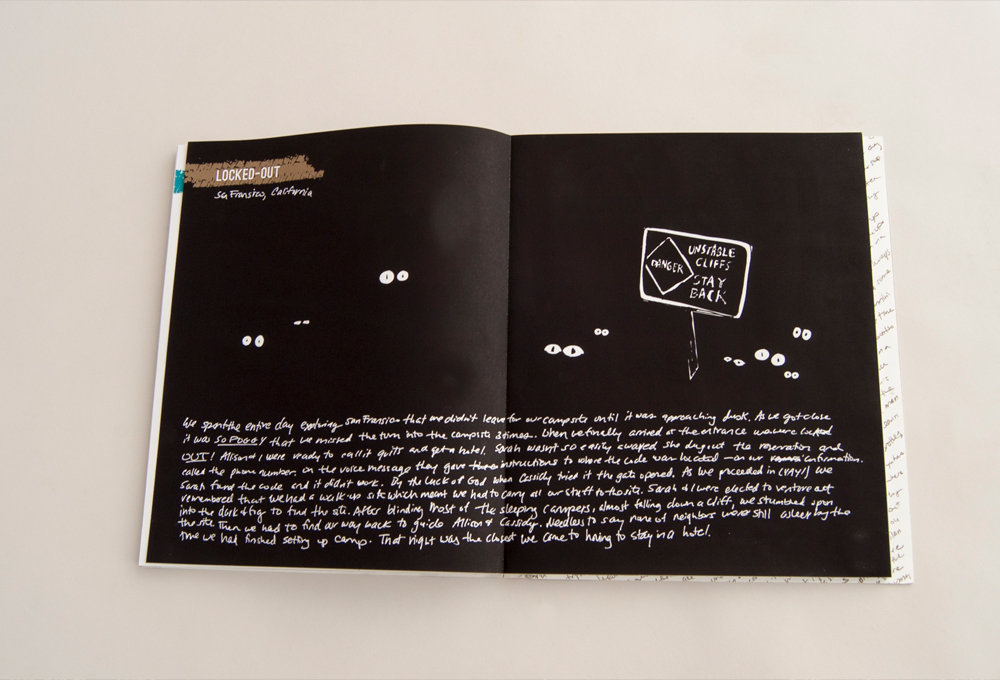 LOCKED-OUT
San Fransico, California
DANGER
UNSTABLE
CLIFFS
STAY
BACK
We spent the entire day exploring San Fransico that we didn't leave for our campsite until it was approaching dusk. As we got close
it was SO FOGGY that we missed the turn into the campsite 3 times. When we finally arrived at the entrance we were locked
OUT! Alison & I were ready to call it quits and get a hotel. Sarah wasn't so easily swayed she dug out the reservation and
called the phone number. On the voice message they gave instructions to where the code was located – on our confirmation.
Sarah found the code and it didn't work. By the luck of God when Cassidy tried it the gate opened. As we proceeded in (YAY!) we
remembered that we had a walk-up site which meant we had to carry all our stuff to the site. Sarah & I were elected to venture out
into the dark & fog to find the site. After blinding most of the sleeping campers, almost falling down a cliff, we stumbled upon
the site. Then we had to find our way back to guide Alison & Cassidy. Needless to say none of neighbors were still asleep by the
time we had finished setting up camp. That night was the closest we came to having to stay in a hotel.